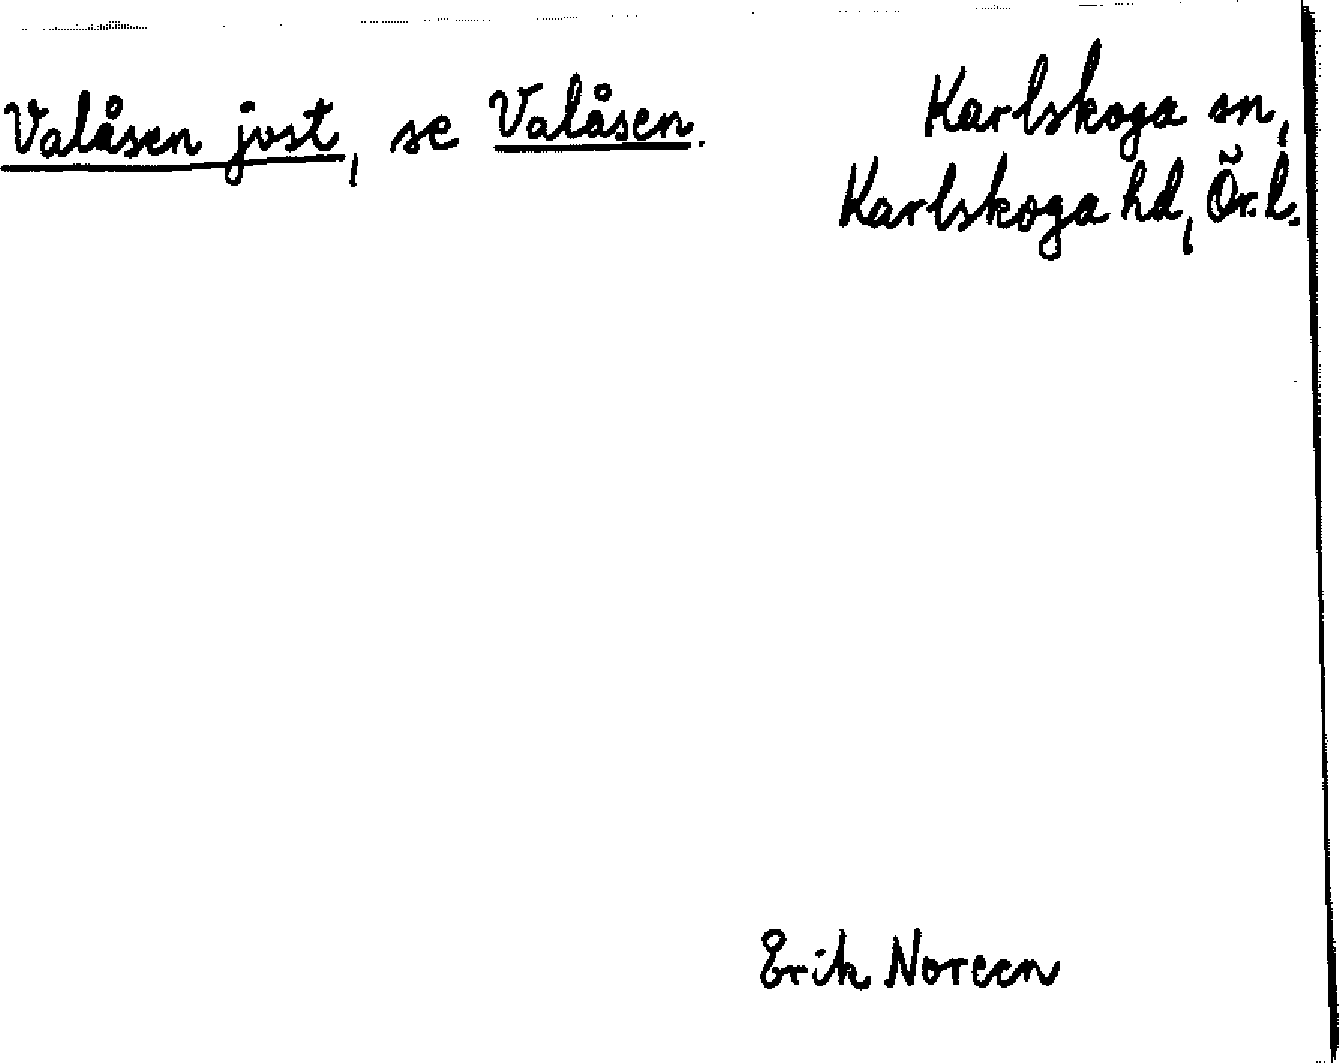 Valåsen jvst, se Valåsen.
Karlskoga sn,
Karlskoga hd, Ör. l.
Erik Noreen